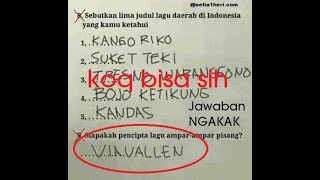 @setia1heri.com
8. Sebutkan lima judul lagu daerah di Indonesia
yang kamu ketahui
1. KANGO RIKO
2. SUKET TEKI
3. TRESNO WARANGGONO
4. BOJO KETIKUNG
5. KANDAS
koq bisa sih
Jawaban
NGAKAK
9. Siapakah pencipta lagu ampar-ampar pisang?
VIAVALLEN